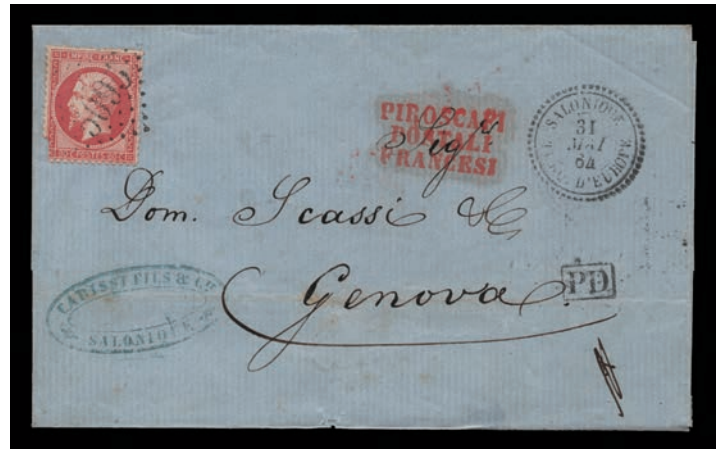 EMPIRE FRANC
PIROSCAFI
POSTALI
FRANCESI
SALONIQUE
31
MAI
64
TURQ. D'EUROPE
Sigri
Dom. Scassi &C
Genova
PD
FILS & Cie
SALONIQUE